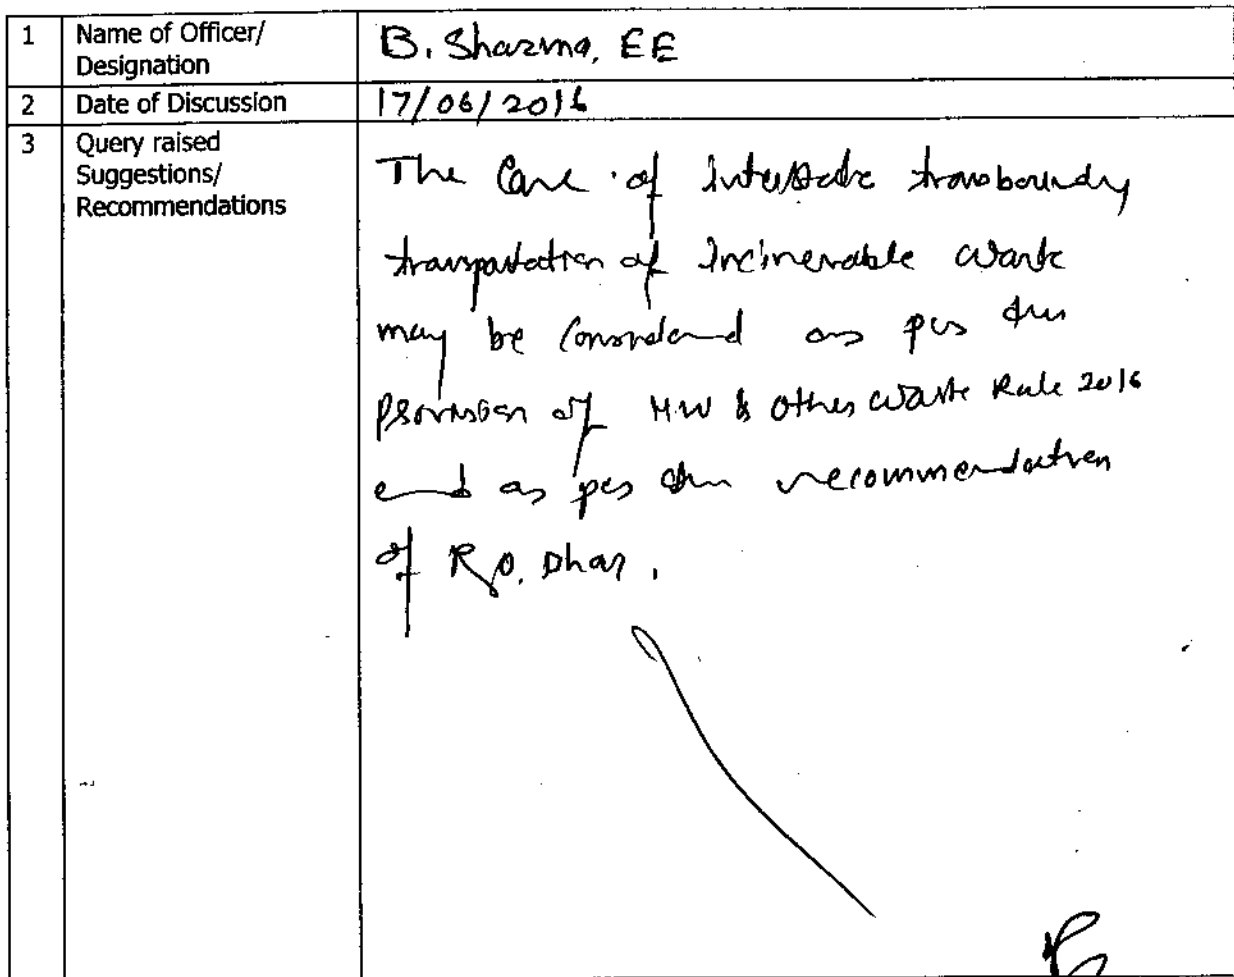 1 Name of Officer/ Designation B. Sharma, EE
2 Date of Discussion 17/06/2016
3 Query raised Suggestions/ Recommendations
The Case of Interstate transboundry
transportation of Incinerable waste
may be Considered as per the
provision of H.W & Other waste Rule 2016
and as per the recommendation
of R.O. Dhar.